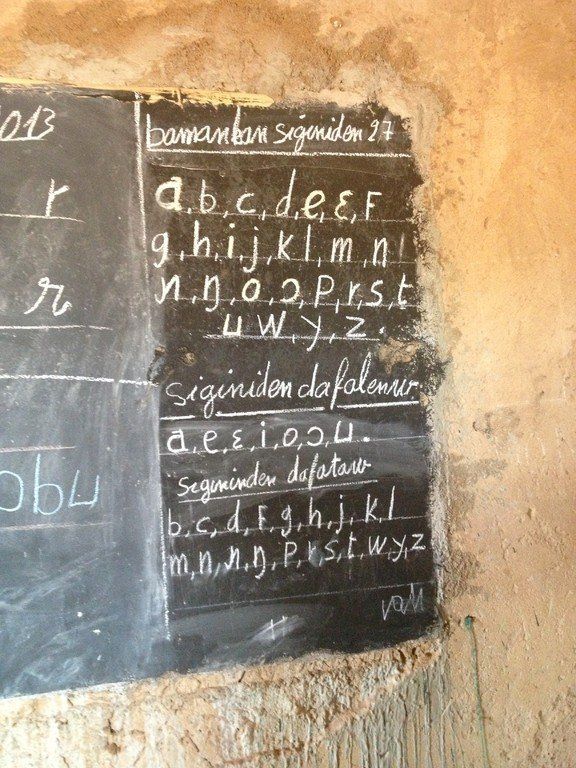 013
r
r
obu
bamankan siginiden 27
a, b, c, d, e, ɛ, F
g, h, i, j, k l, m, n
ɲ, ŋ, o, ɔ, p, r, s, t
u w, y, z.
siginiden dafalenw.
a, e, ɛ, i, o, ɔ, u.
sigininden dafataw
b, c, d, F, g, h, j, k l
m, n, ɲ, ŋ, p, r, s, t, w, y, z